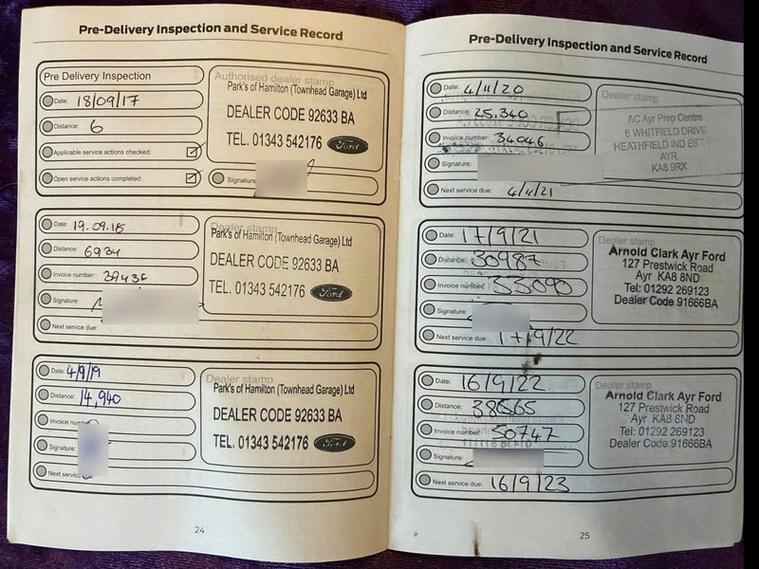 Pre-Delivery Inspection and Service Record
Pre Delivery Inspection
Date: 18/09/17
Distance: 6
Applicable service actions checked:
Open service actions completed:
Authorised dealer stamp
Park's of Hamilton (Townhead Garage) Ltd
DEALER CODE 92633 BA
TEL. 01343 542176 Ford
Signature
Date: 19.09.18
Distance: 6934
Invoice number: 39436
Signature:
Next service due:
Dealer stamp
Park's of Hamilton (Townhead Garage) Ltd
DEALER CODE 92633 BA
TEL. 01343 542176 Ford
Date: 4/9/19
Distance: 14,940
Invoice number
Signature:
Next service
Dealer stamp
Park's of Hamilton (Townhead Garage) Ltd
DEALER CODE 92633 BA
TEL. 01343 542176 Ford
24
Pre-Delivery Inspection and Service Record
Date: 4/11/20
Distance: 25,340
Invoice number: 34046
Signature:
Next service due: 4/11/21
Dealer stamp
AC Ayr Prep Centre
6 WHITFIELD DRIVE
HEATHFIELD IND ESTATE
AYR
KA8 9RX
Date: 17/9/21
Distance: 30987
Invoice number: 53090
Signature:
Next service due: 17/9/22
Dealer stamp
Arnold Clark Ayr Ford
127 Prestwick Road
Ayr KA8 8ND
Tel: 01292 269123
Dealer Code 91666BA
Date: 16/9/22
Distance: 38565
Invoice number: 50747
Signature:
Next service due: 16/9/23
Dealer stamp
Arnold Clark Ayr Ford
127 Prestwick Road
Ayr KA8 8ND
Tel: 01292 269123
Dealer Code 91666BA
25